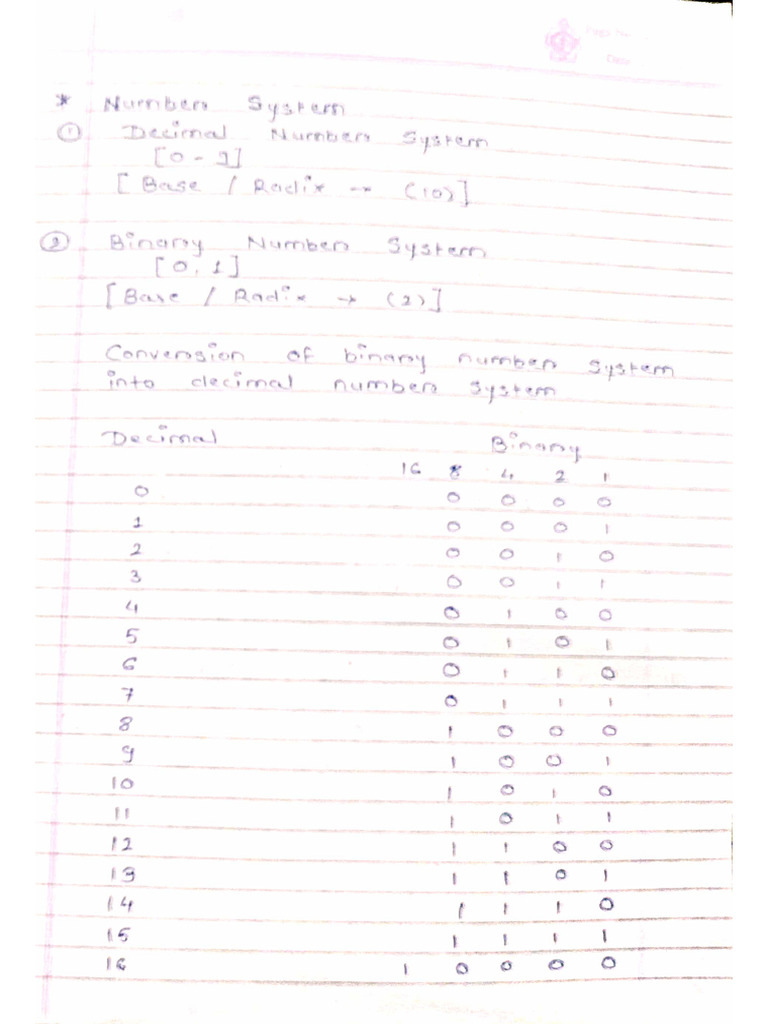 Page No.
Date
* Number System
① Decimal Number System
[0 - 9]
[Base / Radix → (10)]
② Binary Number System
[0, 1]
[Base / Radix → (2)]
Conversion of binary number system
into decimal number system
Decimal Binary
16 8 4 2 1
0 0 0 0 0
1 0 0 0 1
2 0 0 1 0
3 0 0 1 1
4 0 1 0 0
5 0 1 0 1
6 0 1 1 0
7 0 1 1 1
8 1 0 0 0
9 1 0 0 1
10 1 0 1 0
11 1 0 1 1
12 1 1 0 0
13 1 1 0 1
14 1 1 1 0
15 1 1 1 1
16 1 0 0 0 0